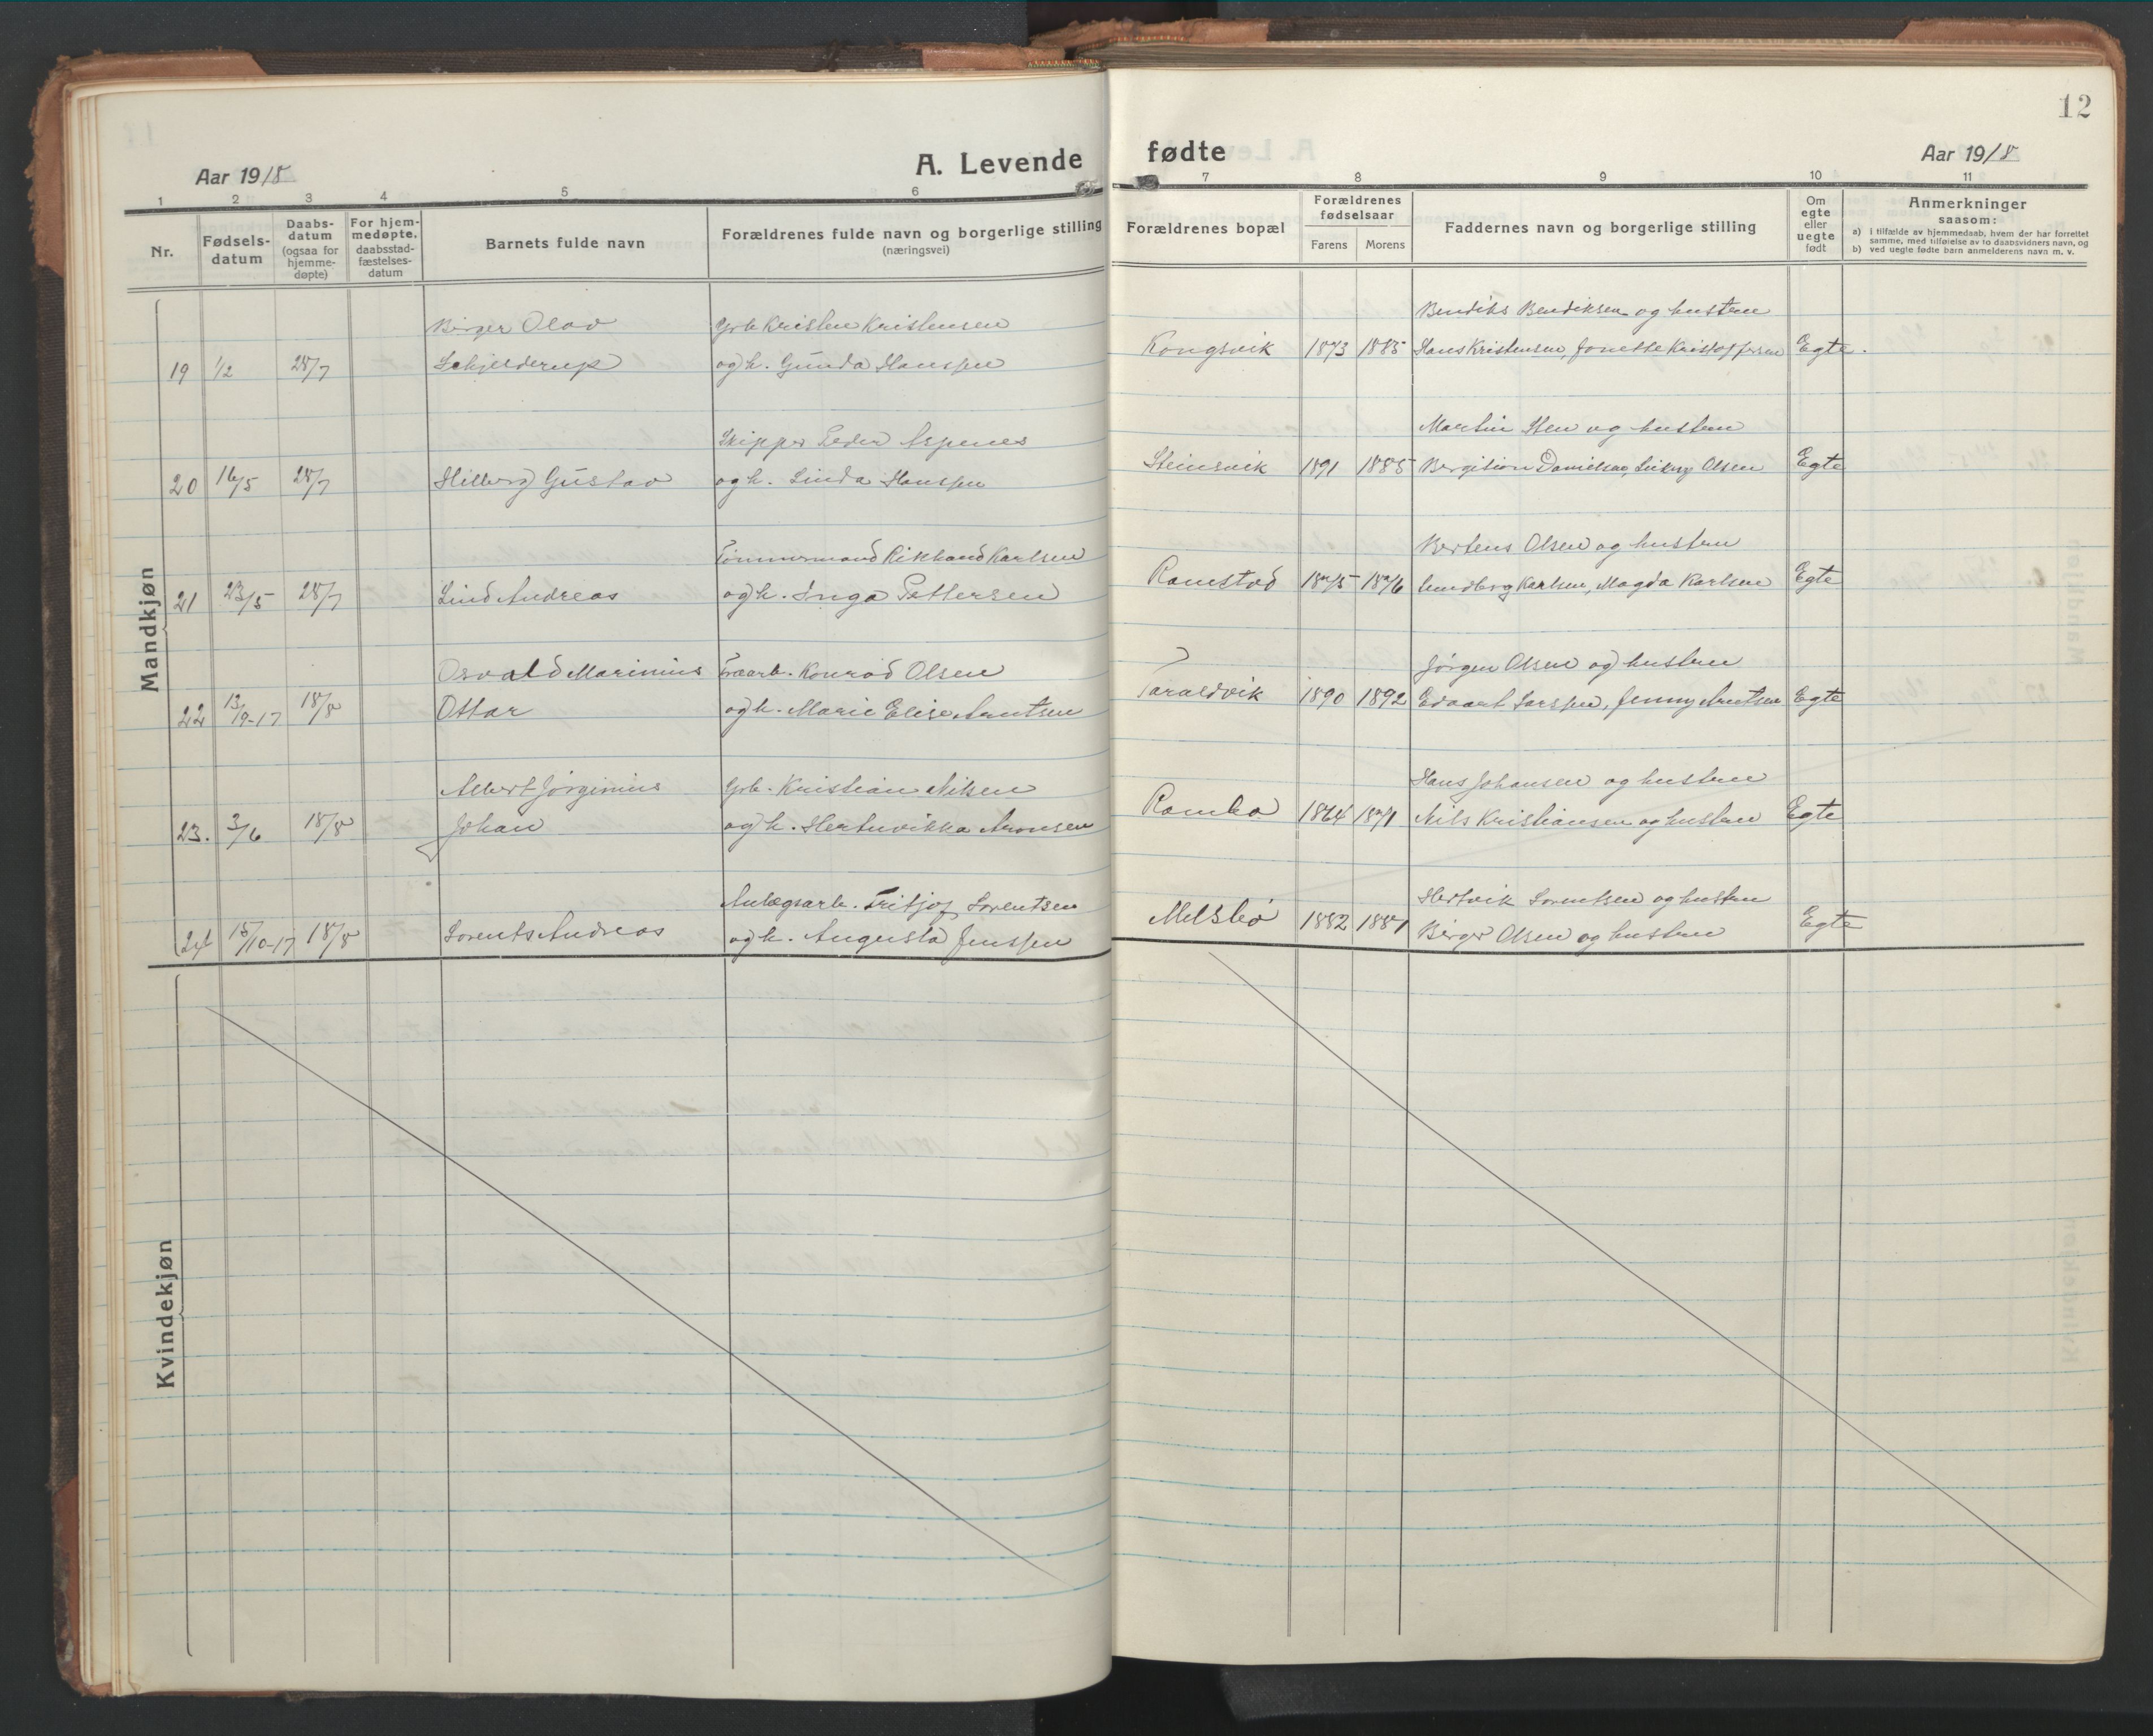 12
Aar 1918
A. Levende
fødte
Aar 1918
1 2 3 4 5 6 7 8 9 10 11
Nr.
Fødsels-
datum
Daabs-
datum
(ogsaa for
hjemme-
døpte)
For hjem-
medøpte.
daabsstad-
fæstelses-
datum
Barnets fulde navn
Forældrenes fulde navn og borgerlige stilling
(næringsvei)
Forældrenes bopæl
Forældrenes
fødselsaar
Farens Morens
Faddernes navn og borgerlige stilling
Om
egte
eller
uegte
født
Anmerkninger
saasom:
a) i tilfælde av hjemmedaab, hvem der har forrettet
samme, med tilføielse av to daabsvidners navn, og
b) ved uegte fødte barn anmelderens navn m. v.
Mandkjøn
Birger Olav Grb Kristen Kristensen Bendiks Bendiksen og hustru
19 1/2 28/7 Schjelderup og h. Gunda Hanssen Kongsvik 1873 1885 Hans Kristensen, Jonette Kristoffersen Egte.
Skipper Peder Aspenes Martin Sten og hustru
20 16/5 28/7 Hilberg Gustav og h. Linda Hanssen Steinsvik 1891 1885 Danielsen, Olsen Egte
Tømmermand Rikhard Karlsen Bertens Olsen og hustru
21 23/5 28/7 Lind Andreas og h. Inga Pettersen Ramstad 1875 1876 Lundberg Karlsen, Magda Karlsen Egte
Osvald Marinius Konrad Olsen Jørgen Olsen og hustru
22 13/9-17 18/8 Ottar og h. Marie Elise Arntsen Taraldvik 1890 1892 Edvart Larssen, Jenny Arntsen Egte
Albert Jørginius Grb. Kristian Nilsen Hans Johansen og hustru
23. 3/6 18/8 Johan og h. Hertuvikka Aronsen Rambø 1864 1871 Nils Kristiansen og hustru Egte
Anlægsarb. Fritjof Lorentsen Hertvik Lorentsen og hustru
24 15/10-17 18/8 Lorents Andreas og h. Augusta Jenssen Melsbø 1882 1881 Birger Olsen og hustru Egte
Kvindekjøn